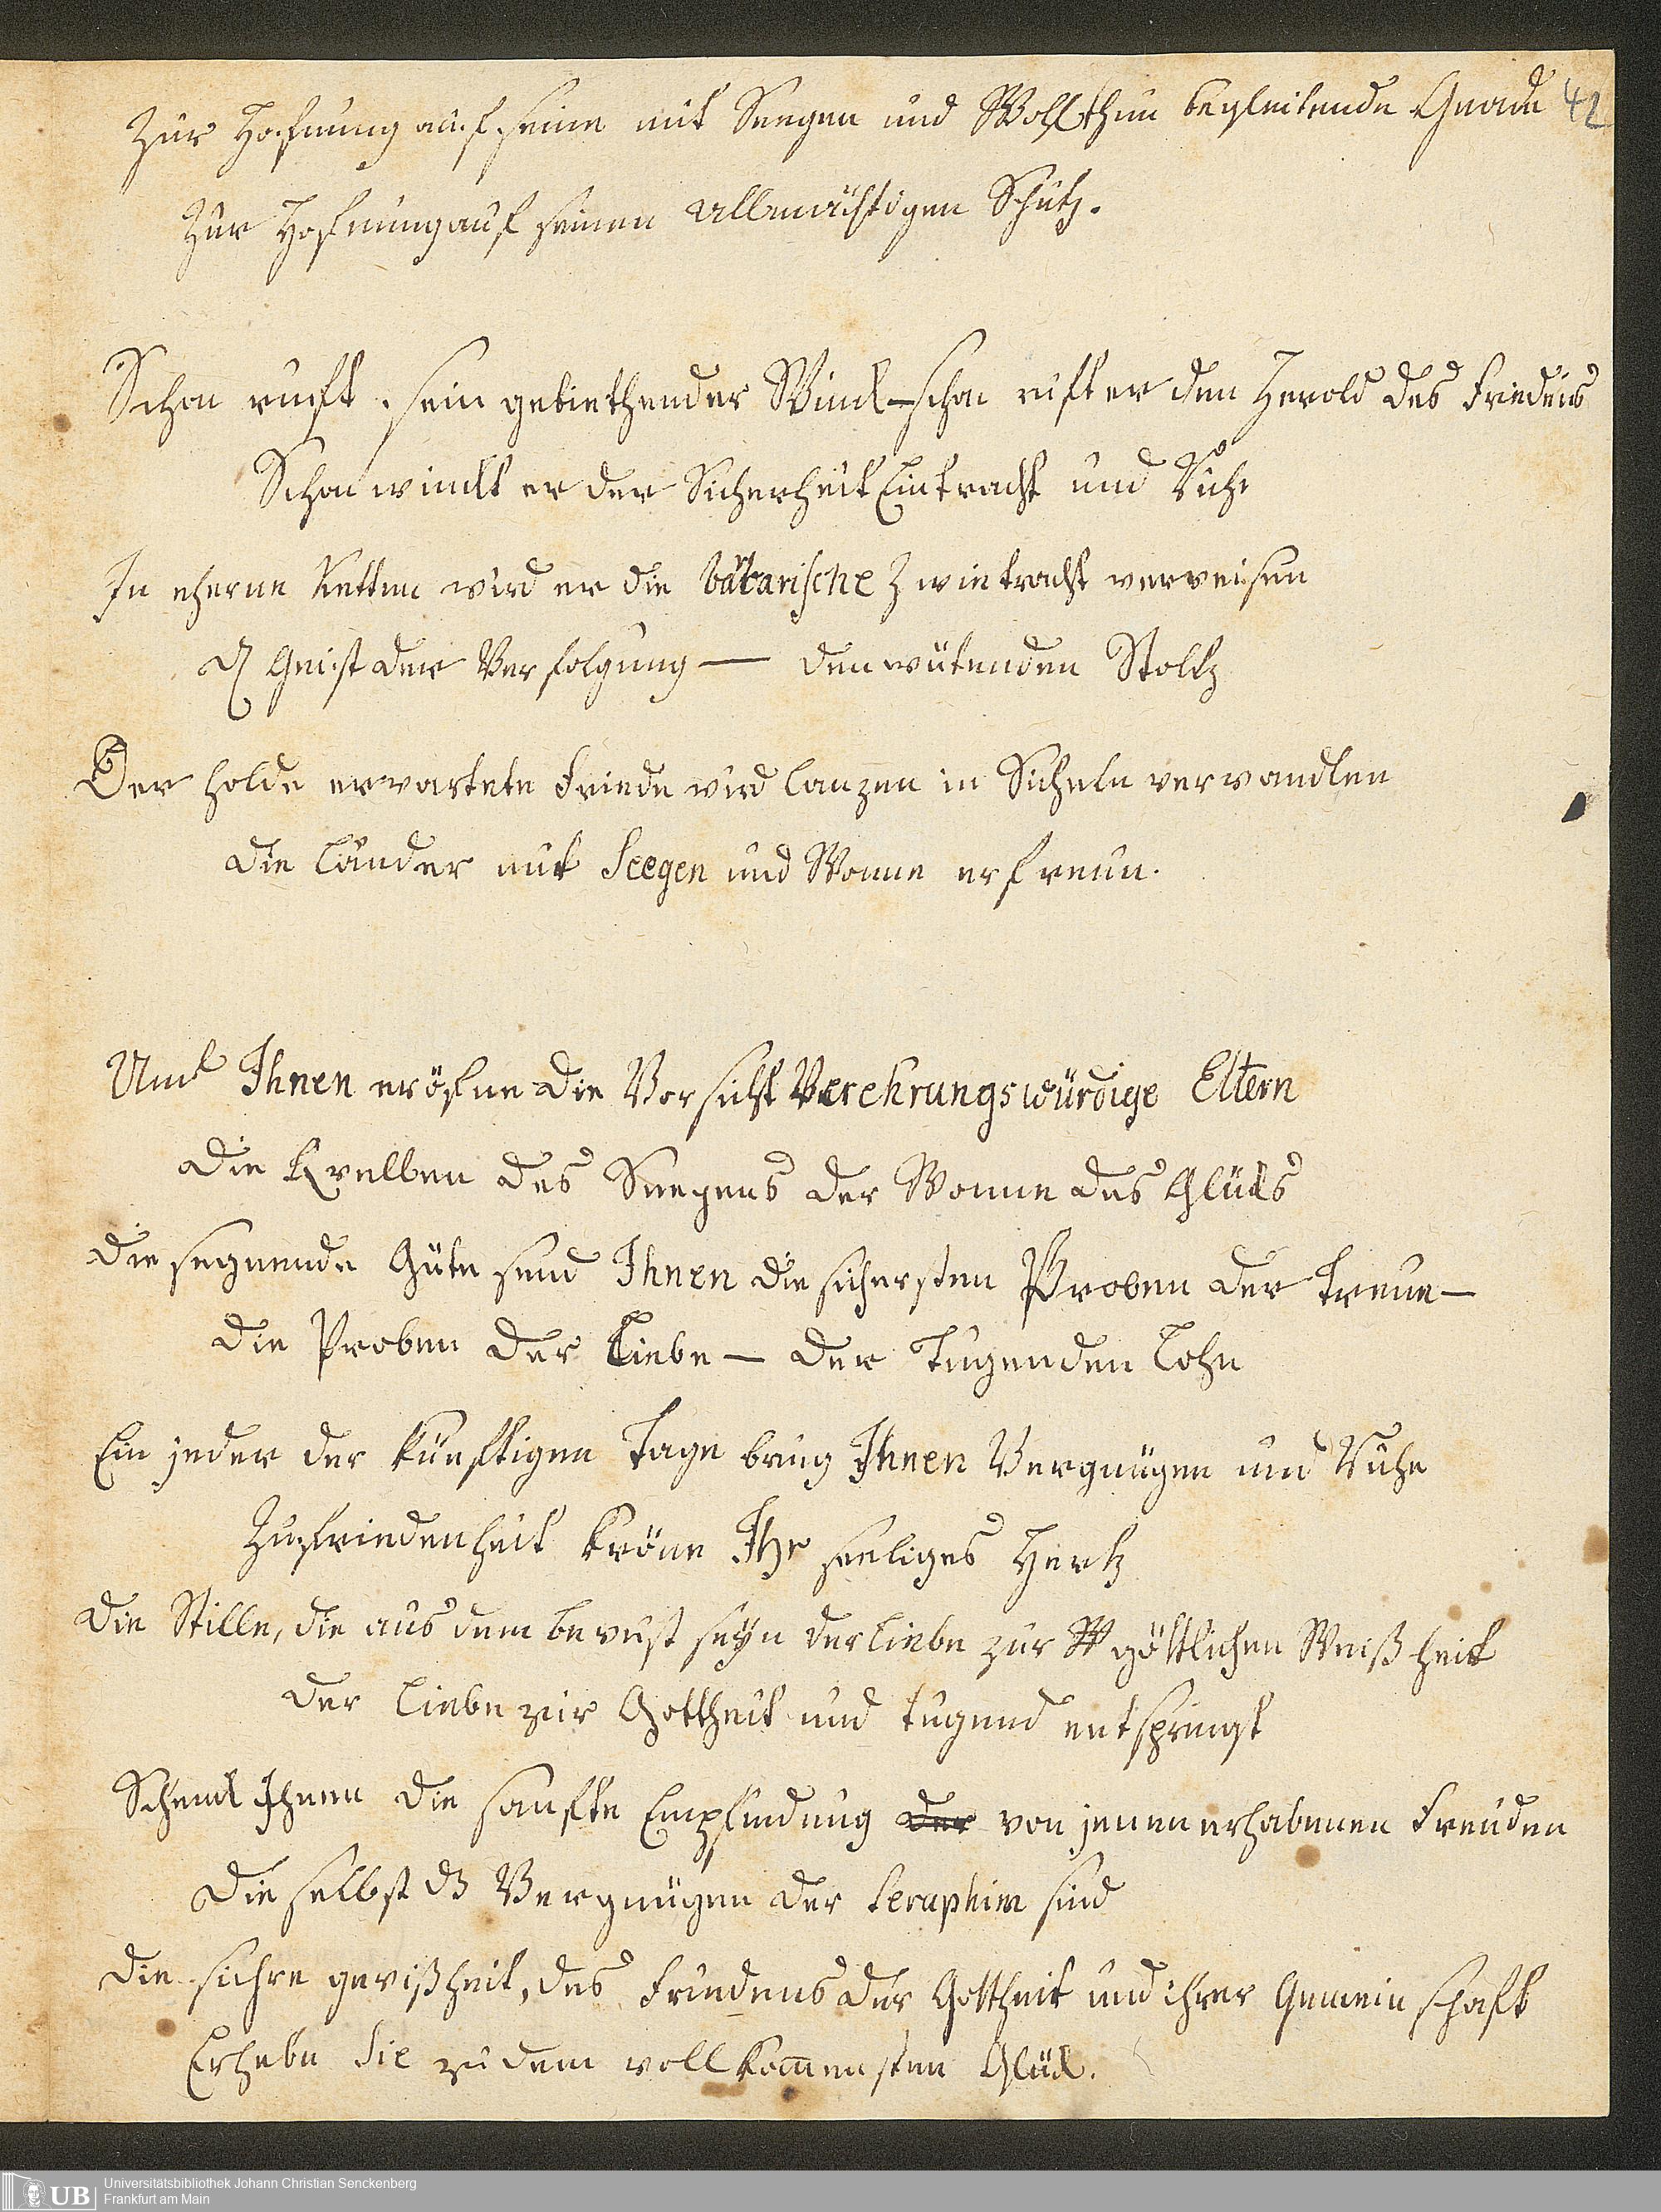 Zur Hofnung auf seine mit Seegen und Wohlthun begleitende Gnade 42
Zur Hofnung auf seinen allmächtigen Schutz.
Schon ruft sein gebiethender Wink – schon ruft er den Herold des Friedens
Schon winkt er der Sicherheit Eintracht und Ruhe
In eherne Ketten wird er die bäbarische Zwietracht verweisen
Geist der Verfolgung — den wütenden Stoltz
Der holde erwartete Friede wird Lanzen in Sicheln verwandlen
die Länder mit Seegen und Wonne erfreun.
Und Ihnen eröfne die Vorsicht Verehrungswürdige Eltern
die Qvellen des Seegens der Wonne des Glüks
die segnende Güte send Ihnen die sichersten Proben der Treue –
die Proben der Liebe – der Tugenden Lohn
Ein jeder der künftigen Tage bring Ihnen Vergnügen und Ruhe
Zufriedenheit kröne Ihr seeliges Hertz
die Stille, die aus dem bewust seyn der Liebe zur W göttlichen Weißheit
der Liebe zur Gottheit und Tugend entspringt
Schenk Ihnen die sanfte Empfindung der von jenen erhabenen Freuden
die selbst ds Vergnügen der Seraphim sind
die sichre gewißheit, des Friedens der Gottheit und ihrer Gemeinschaft
Erhebe Sie zu dem vollkom̄ensten Glük.
UB Universitätsbibliothek Johann Christian Senckenberg
Frankfurt am Main